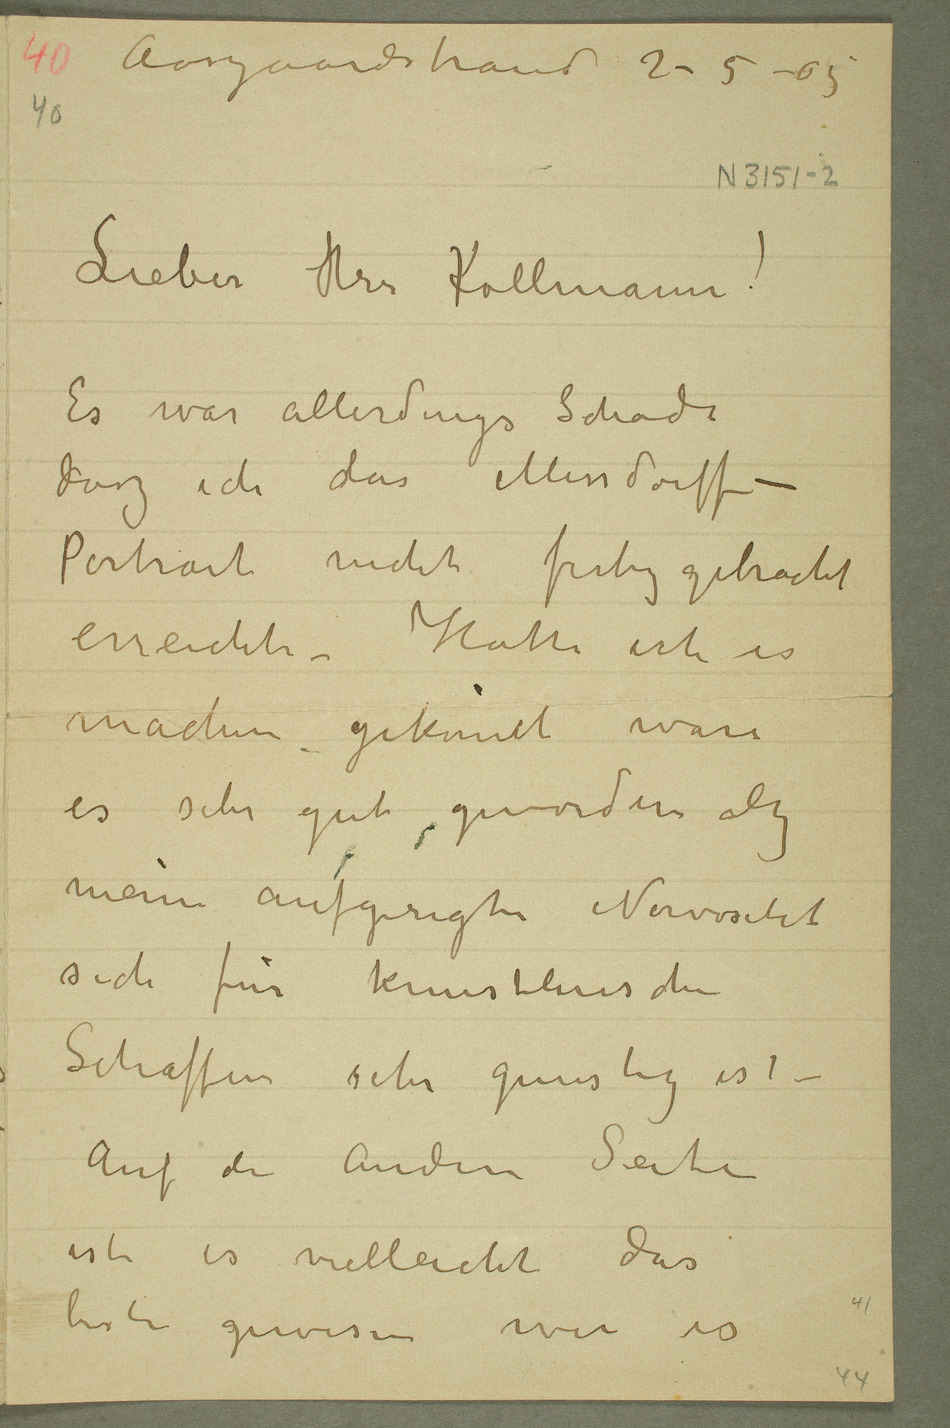 40 Aasgaardstrand 2-5-05
40
N 3151-2
Lieber Herr Kollmann!
Es war allerdings Schade
dasz ich das Mess Dorff-
Portrait nicht fertig gebracht
erreichte – Hatte ich es
machen gekönnt wäre
es sehr gut geworden da
meine aufgeregte Nervositet
sich für kunstlerischen
Schaffen sehr gunstig ist –
Auf die Andere Seite
ist es vielleicht das
beste gewesen wie es
41
44